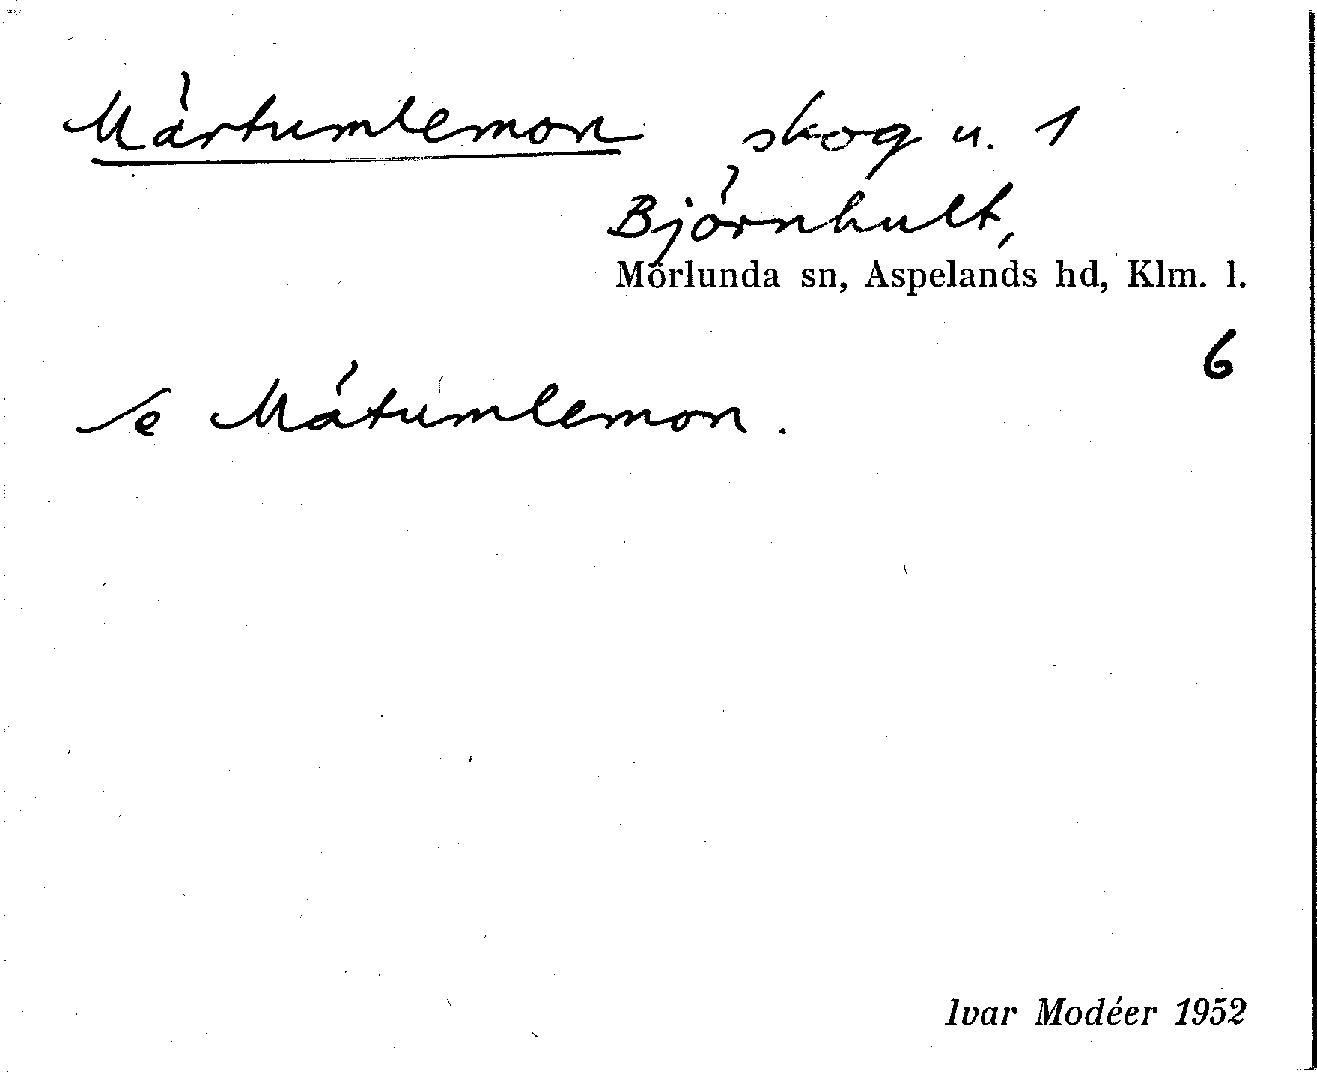 Mårtumlemon skog u. 1
Björnhult,
Mörlunda sn, Aspelands hd, Klm. l.
6
Se Måtumlemon.
Ivar Modéer 1952